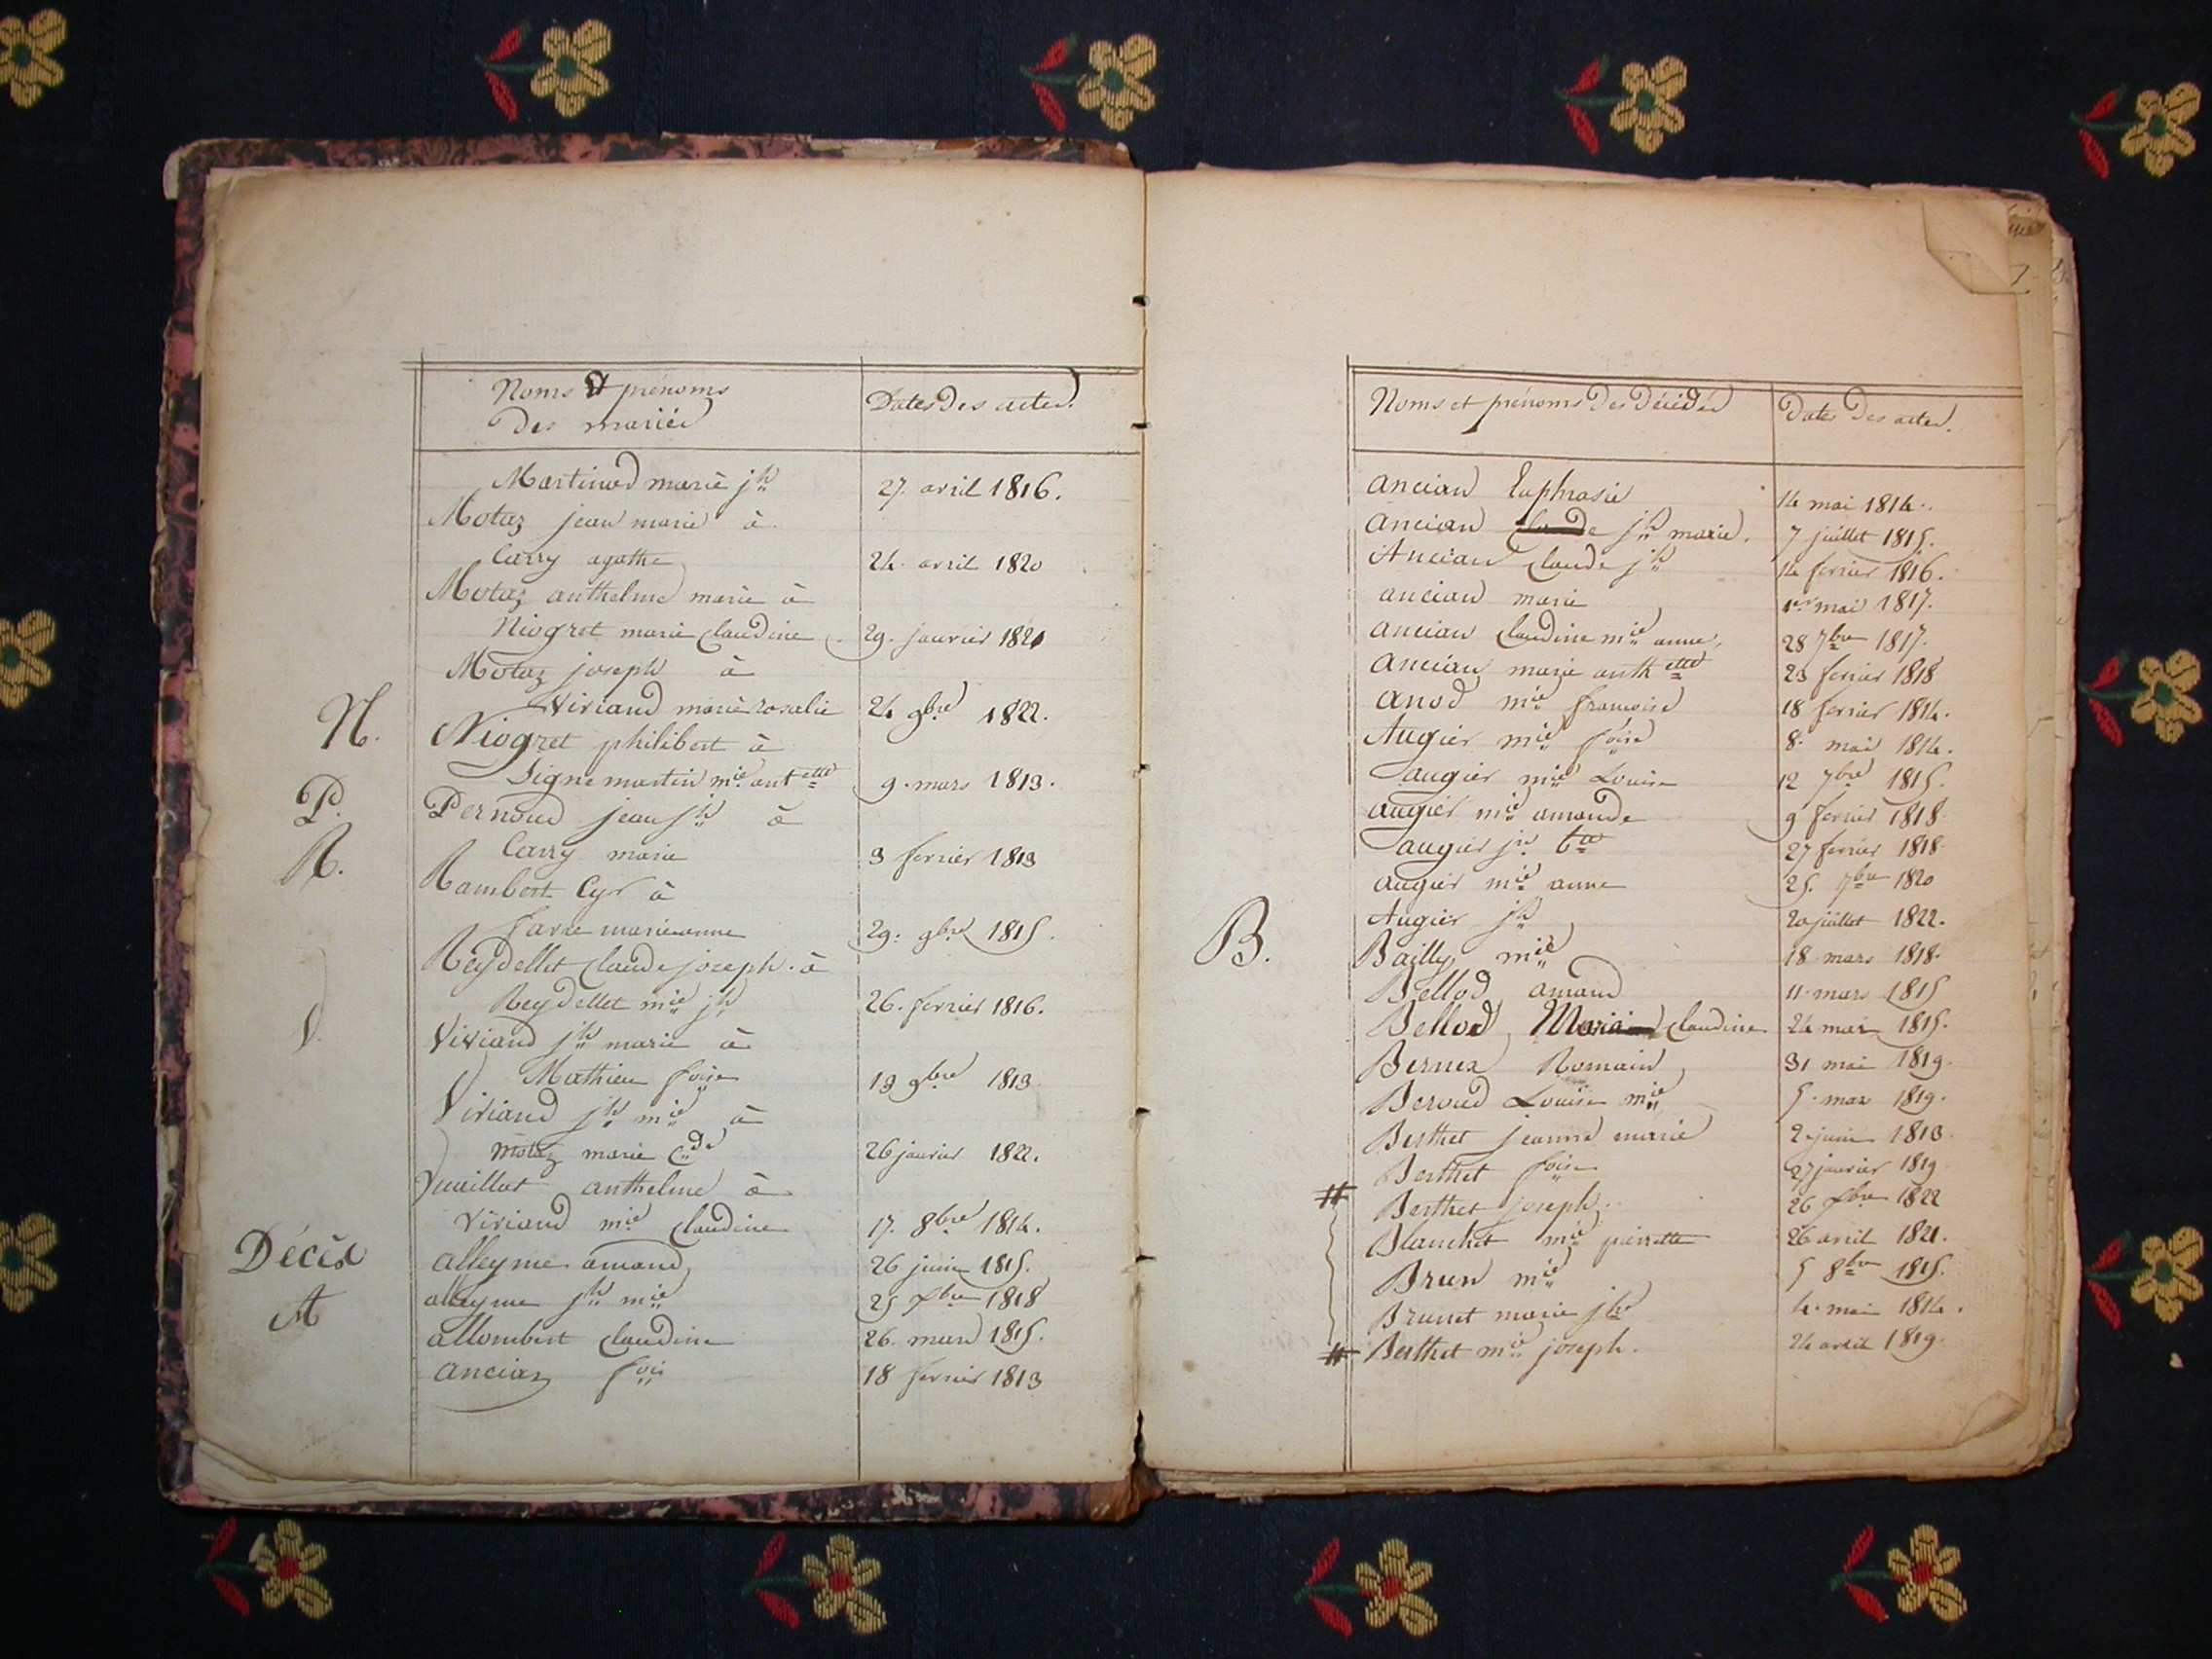 Noms et prénoms
des mariés
Dates des actes.
Martinod marie jh
27. avril 1816.
Motaz jean marie à
Carry agathe
24. avril 1820
Motaz anthelme marie à
Niogret marie claudine
29. janvier 1821
Motaz joseph à
Viviand marie rosalie
24 9bre 1822.
N.
Niogret philibert à
Signemartin mie antette
9. mars 1813.
P.
Pernoud jean jh à
Carry marie
3 fevrier 1813
R.
Rambert Cyr à
favre marieanne
29. 9bre 1815.
Reydellet claude joseph. à
Reydellet mie jh
26. fevrier 1816.
V.
Viviand jh marie à
Mathieu foise
13 9bre 1813
Viviand jh mie à
Motaz marie Cde
26 janvier 1822.
Vuaillat anthelme à
Viviand mie claudine
17. 8bre 1814.
Décès
alleyme amand
26 juin 1815.
A
alleyme jh mie
25 Xbre 1818
allombert claudine
26. mars 1815.
ancian fois
18 fevrier 1813
Noms et prénoms des décédés
Dates des actes.
ancian Euphrasie
14 mai 1814.
ancian claude jh marie.
7 juillet 1815.
Ancian claude jh
14 fevrier 1816.
ancian marie
1er mai 1817.
ancian claudine mie anne,
28 7bre 1817.
ancian marie anthette
23 fevrier 1818
anod mie francoise
18 fevrier 1814.
Augier mie foise
8. mai 1814.
augier mie Louise
12 7bre 1815.
augier mie amande
9 fevrier 1818
augier jn bte
27 fevrier 1818
augier mie anne
25. 7bre 1820
Augier jh
20 juillet 1822.
B.
Bailly mie
18 mars 1818.
Bellod amand
11. mars 1815
Bellod Marie claudine
24 mai 1815.
Bernex Romain
31 mai 1819.
Beroud Louise mie
5. mar 1819.
Berthet jeanne marie
2 juin 1813.
Berthet foise
27 janvier 1819
# Berthet joseph.
26 Xbre 1822
Blanchet mie pierrette
26 avril 1821.
Brun mie
5 8bre 1815.
Brunet marie jhe
4. mai 1814.
# Berthet mie joseph.
24 avril 1819.